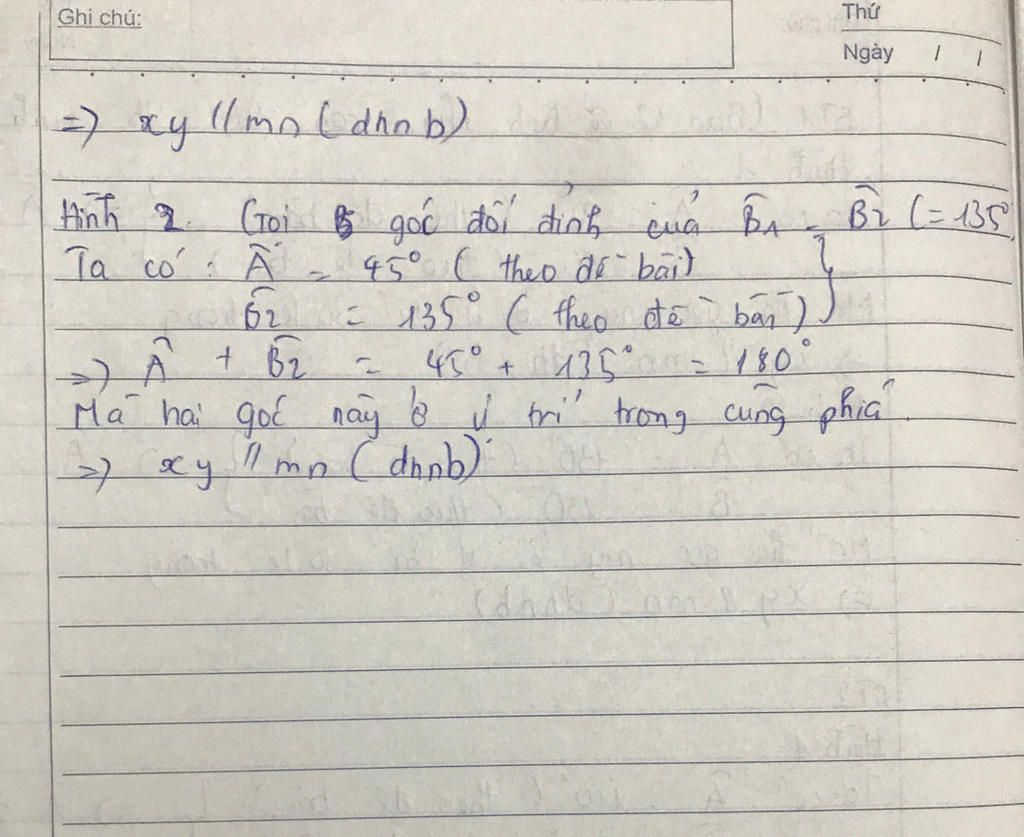 Ghi chú:
Thứ
Ngày / /
=> xy // mn (dhnb)
Hình 2. Gọi góc đối đỉnh của B̂1 = B̂2 (= 135°)
Ta có : Â = 45° ( theo đề bài) }
B̂2 = 135° ( theo đề bài )
=> Â + B̂2 = 45° + 135° = 180°
Mà hai góc này ở vị trí trong cùng phía.
=> xy // mn ( dhnb)